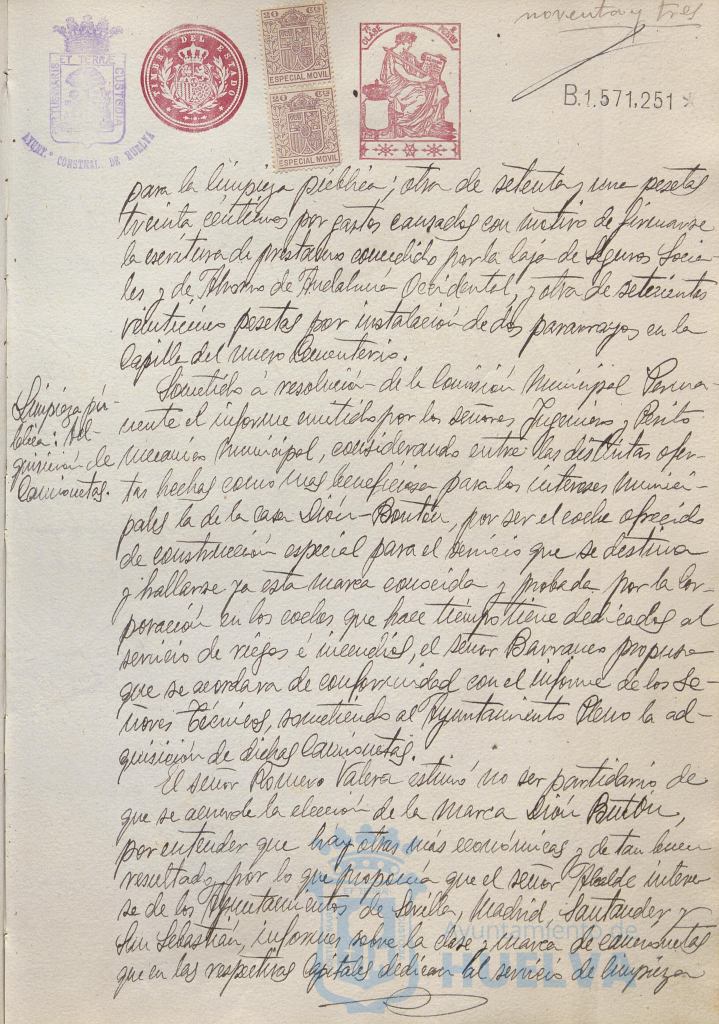 noventa y tres
PORTUS MARIS ET TERRAE CUSTODIA
AYUNT.º CONSTNAL. DE HUELVA
TIMBRE DEL ESTADO
20 Cs
ESPECIAL MOVIL
20 Cs
ESPECIAL MOVIL
8ª CLASE
B.1.571.251
para la limpieza pública; otra de setenta y una pesetas
treinta céntimos por gastos causados con motivo de firmarse
la escritura de préstamo concedido por la Caja de Seguros Socia-
les y de Ahorro de Andalucía Occidental, y otra de setecientas
veinticinco pesetas por instalación de dos pararrayos en la
Capilla del nuevo Cementerio.
Limpieza pú-
blica: Ad-
quisición de
Camionetas.
Sometido á resolución de la Comisión Municipal Perma-
nente el informe emitido por los señores Ingeniero y Perito
mecánico Municipal, considerando entre las distintas ofer-
tas hechas como mas beneficiosa para los intereses munici-
pales la de la casa Dión-Boutón, por ser el coche ofrecido
de construcción especial para el servicio que se destina
y hallarse ya esta marca conocida y probada por la Cor-
poración en los coches que hace tiempo tiene dedicados al
servicio de riegos é incendios, el señor Barranco propuso
que se acordara de conformidad con el informe de los Se-
ñores Técnicos, sometiendo al Ayuntamiento Pleno la ad-
quisición de dichas Camionetas.
El señor Romero Valera estimó no ser partidario de
que se acuerde la elección de la marca Dión Butón,
por entender que hay otras más económicas y de tan buen
resultado, por lo que proponía que el señor Alcalde interes-
se de los Ayuntamientos de Sevilla, Madrid, Santander y
San Sebastián, informes sobre la clase y marca de camionetas
que en las respectivas Capitales dedican al servicio de limpieza
Ayuntamiento de
HUELVA